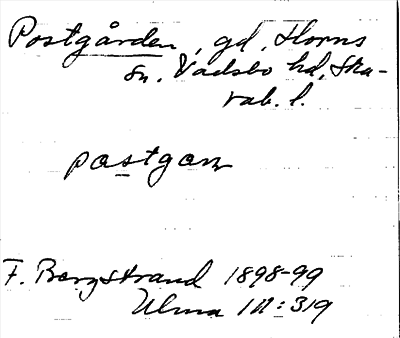 Postgården, gd, Horns
sn. Vadsbo hd, Ska-
rab. l.
postgaɳ
F. Bergstrand 1898-99
Ulma 111:319